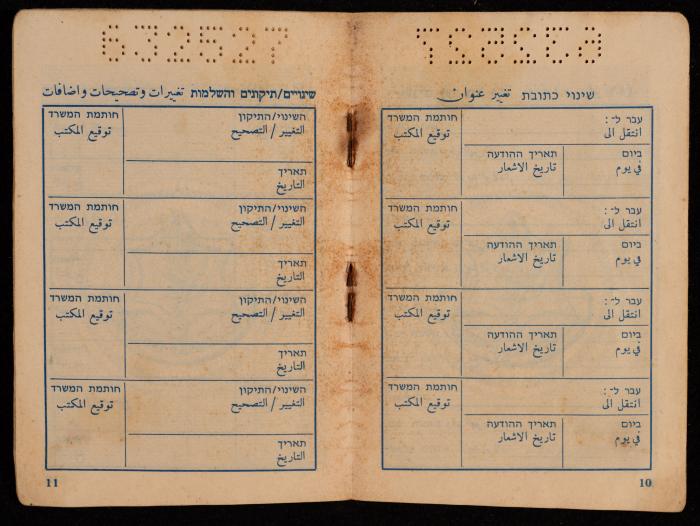 632527
שינוי כתובת تغيير عنوان
עבר ל־:
انتقل الى
חותמת המשרד
توقيع المكتب
ביום
في يوم
תאריך ההודעה
تاريخ الاشعار
עבר ל־:
انتقل الى
חותמת המשרד
توقيع المكتب
ביום
في يوم
תאריך ההודעה
تاريخ الاشعار
עבר ל־:
انتقل الى
חותמת המשרד
توقيع المكتب
ביום
في يوم
תאריך ההודעה
تاريخ الاشعار
עבר ל־:
انتقل الى
חותמת המשרד
توقيع المكتب
ביום
في يوم
תאריך ההודעה
تاريخ الاشعار
10
632527
שינויים/תיקונים והשלמות تغييرات وتصحيحات واضافات
השינוי/התיקון
التغيير / التصحيح
חותמת המשרד
توقيع المكتب
תאריך
التاريخ
השינוי/התיקון
التغيير / التصحيح
חותמת המשרד
توقيع المكتب
תאריך
التاريخ
השינוי/התיקון
التغيير / التصحيح
חותמת המשרד
توقيع المكتب
תאריך
التاريخ
השינוי/התיקון
التغيير / التصحيح
חותמת המשרד
توقيع المكتب
תאריך
التاريخ
11